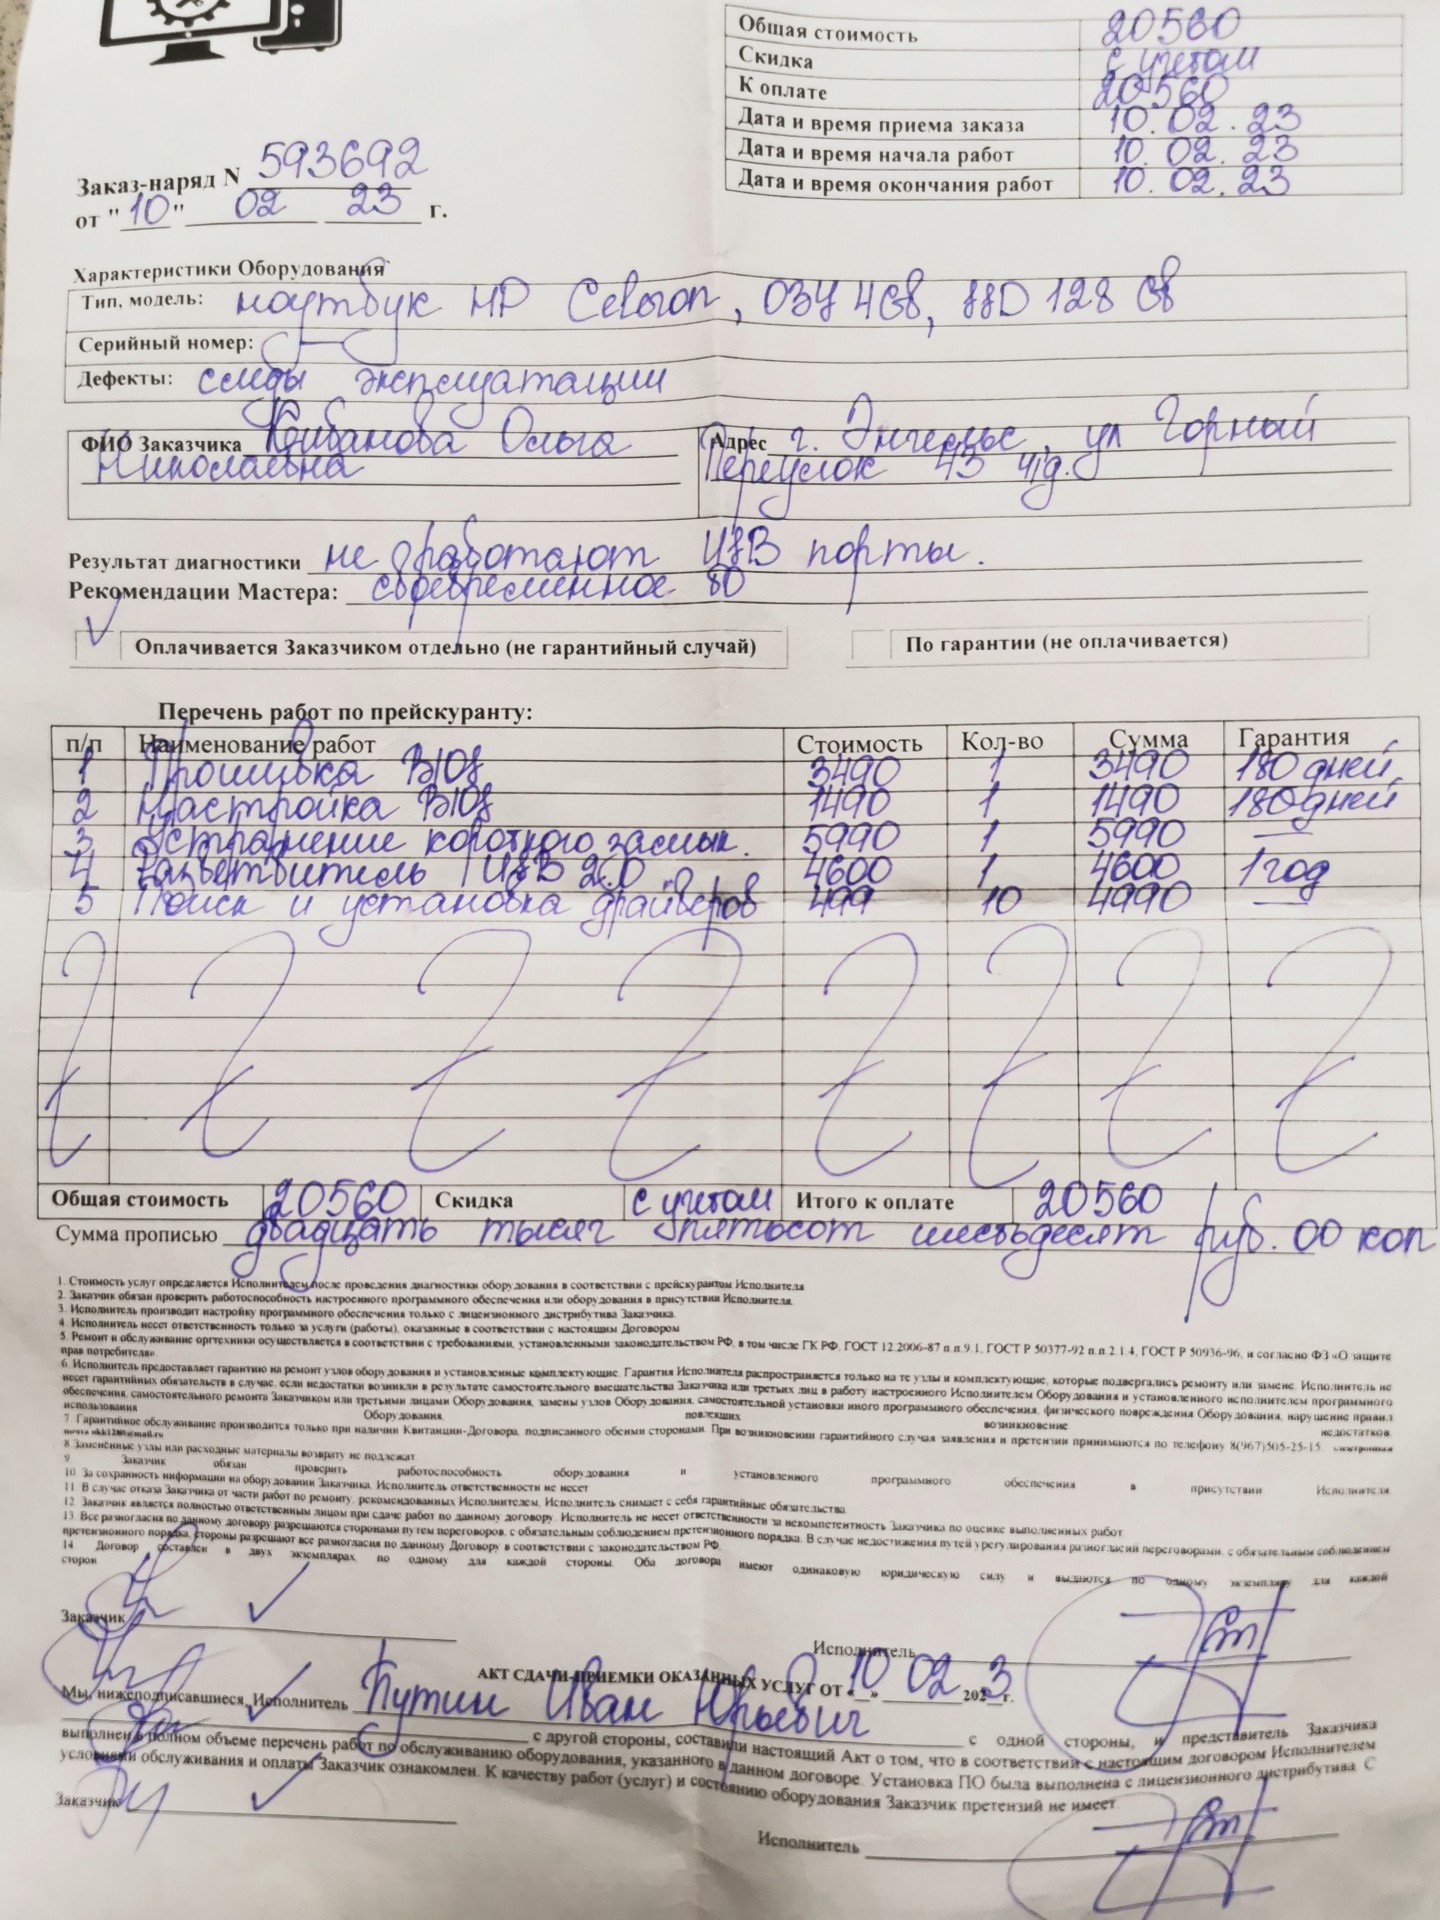 Общая стоимость 20560
Скидка с учетом
К оплате 20560
Дата и время приема заказа 10.02.23
Дата и время начала работ 10.02.23
Дата и время окончания работ 10.02.23
Заказ-наряд N 593692
от "10" 02 23 г.
Характеристики Оборудования
Тип, модель: ноутбук HP Celeron, ОЗУ 4GB, SSD 128 GB
Серийный номер:
Дефекты: следы эксплуатации
ФИО Заказчика Ольга
Николаевна
Адрес г. Энгельс, ул Горный
Переулок 43 ч/д.
Результат диагностики не работают USB порты.
Рекомендации Мастера: своевременное ТО
Оплачивается Заказчиком отдельно (не гарантийный случай) По гарантии (не оплачивается)
Перечень работ по прейскуранту:
п/п Наименование работ Стоимость Кол-во Сумма Гарантия
1 Прошивка BIOS 3490 1 3490 180 дней
2 Настройка BIOS 1490 1 1490 180 дней
3 Устранение короткого замык. 5990 1 5990 —
4 Разветвитель USB 2.0 4600 1 4600 1 год
5 Поиск и установка драйверов 499 10 4990 —
Общая стоимость 20560 Скидка с учетом Итого к оплате 20560
Сумма прописью двадцать тысяч пятьсот шестьдесят руб. 00 коп
1. Стоимость услуг определяется Исполнителем после проведения диагностики оборудования в соответствии с прейскурантом Исполнителя
2. Заказчик обязан проверить работоспособность настроенного программного обеспечения или оборудования в присутствии Исполнителя.
3. Исполнитель производит настройку программного обеспечения только с лицензионного дистрибутива Заказчика.
4. Исполнитель несет ответственность только за услуги (работы), оказанные в соответствии с настоящим Договором
5. Ремонт и обслуживание оргтехники осуществляется в соответствии с требованиями, установленными законодательством РФ, в том числе ГК РФ, ГОСТ 12.2006-87 п.п.9.1, ГОСТ Р 50377-92 п.п.2.1.4, ГОСТ Р 50936-96, и согласно ФЗ «О защите
прав потребителя».
6. Исполнитель предоставляет гарантию на ремонт узлов оборудования и установленные комплектующие. Гарантия Исполнителя распространяется только на те узлы и комплектующие, которые подвергались ремонту или замене. Исполнитель не
несет гарантийных обязательств в случае, если недостатки возникли в результате самостоятельного вмешательства Заказчика или третьих лиц в работу настроенного Исполнителем Оборудования и установленного исполнителем программного
обеспечения, самостоятельного ремонта Заказчиком или третьими лицами Оборудования, замены узлов Оборудования, самостоятельной установки иного программного обеспечения, физического повреждения Оборудования, нарушение правил
использования Оборудования, повлекших возникновение недостатков.
7. Гарантийное обслуживание производится только при наличии Квитанции-Договора, подписанного обеими сторонами. При возникновении гарантийного случая заявления и претензии принимаются по телефону 8(967)505-25-15, электронная
8. Замененные узлы или расходные материалы возврату не подлежат.
9 Заказчик обязан проверить работоспособность оборудования и установленного программного обеспечения в присутствии Исполнителя
10. За сохранность информации на оборудовании Заказчика, Исполнитель ответственности не несет
11. В случае отказа Заказчика от части работ по ремонту, рекомендованных Исполнителем, Исполнитель снимает с себя гарантийные обязательства.
12. Заказчик является полностью ответственным лицом при сдаче работ по данному договору. Исполнитель не несет ответственности за некомпетентность Заказчика по оценке выполненных работ
13. Все разногласия по данному договору разрешаются сторонами путем переговоров, с обязательным соблюдением претензионного порядка. В случае недостижения путей урегулирования разногласий переговорами, с обязательным соблюдением
претензионного порядка, стороны разрешают все разногласия по данному Договору в соответствии с законодательством РФ.
14 Договор составлен в двух экземплярах, по одному для каждой стороны. Оба договора имеют одинаковую юридическую силу и выдаются по одному экземпляру для каждой
сторон
Заказчик Исполнитель
АКТ СДАЧИ-ПРИЕМКИ ОКАЗАННЫХ УСЛУГ ОТ «10» 02 2023 г.
Мы, нижеподписавшиеся, Исполнитель Путин Иван Юрьевич с одной стороны, и представитель Заказчика
с другой стороны, составили настоящий Акт о том, что в соответствии с настоящим договором Исполнителем
выполнен в полном объеме перечень работ по обслуживанию оборудования, указанного в данном договоре. Установка ПО была выполнена с лицензионного дистрибутива. С
условиями обслуживания и оплаты Заказчик ознакомлен. К качеству работ (услуг) и состоянию оборудования Заказчик претензий не имеет.
Заказчик
Исполнитель